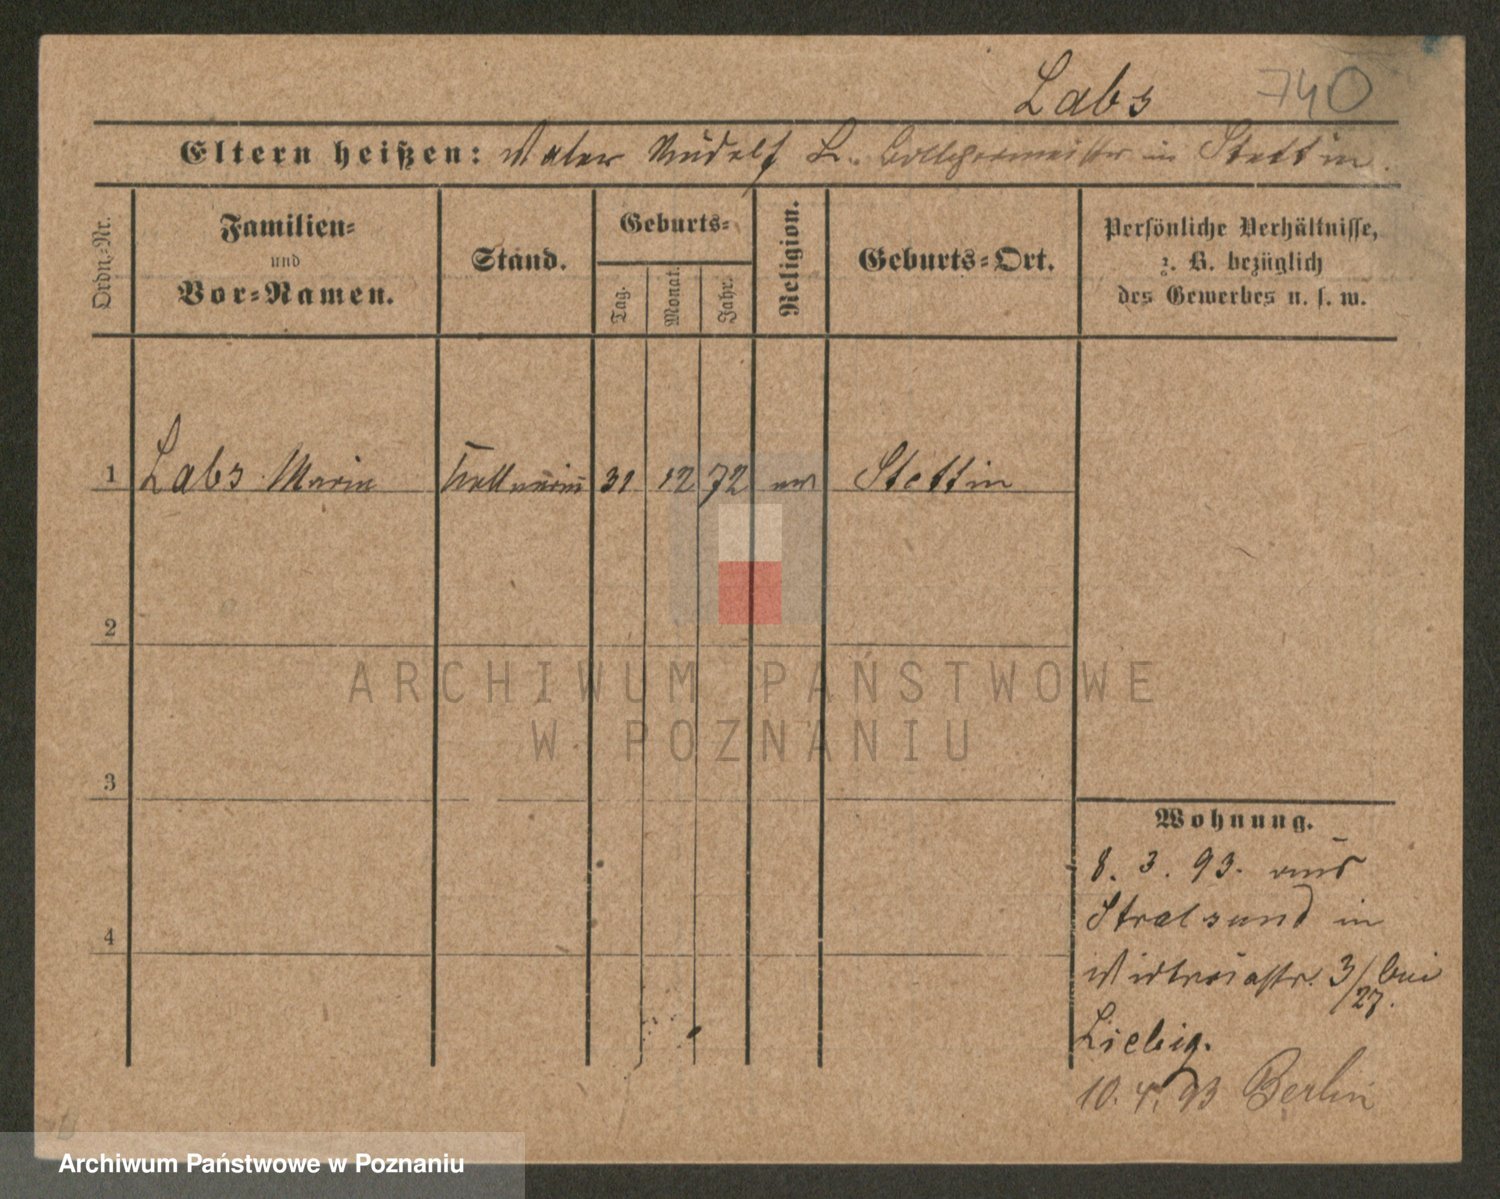 Labs 740
Eltern heißen: Vater Rudolf L. in Stettin.
Ordn.-Nr.
Familien-
und
Vor-Namen.
Stand.
Geburts-
Tag.
Monat.
Jahr.
Religion.
Geburts-Ort.
Persönliche Verhältnisse,
z. B. bezüglich
des Gewerbes u. s. w.
1 Labs Marie Kellnerin 31 12 72 ev Stettin
2
ARCHIWUM PAŃSTWOWE
W POZNANIU
3
Wohnung.
8. 3. 93. aus
Stralsund in
Victoriastr. 3/27. bei
4
Liebig.
10. 4. 93 Berlin
Archiwum Państwowe w Poznaniu